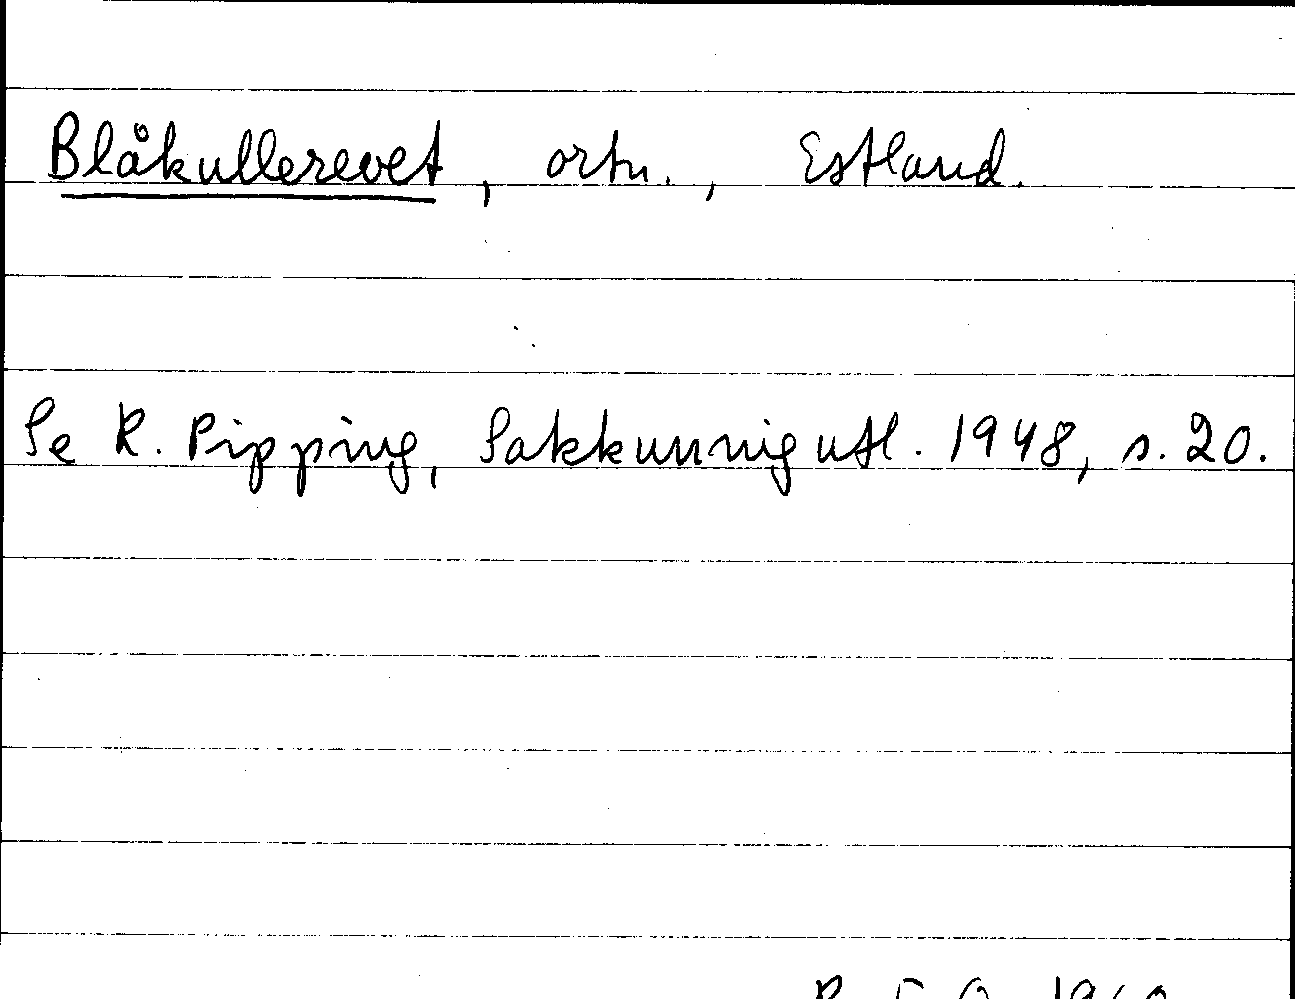 Blåkullerevet, ortn., Estland.
Se R. Pipping, Sakkunnigutl. 1948, s. 20.